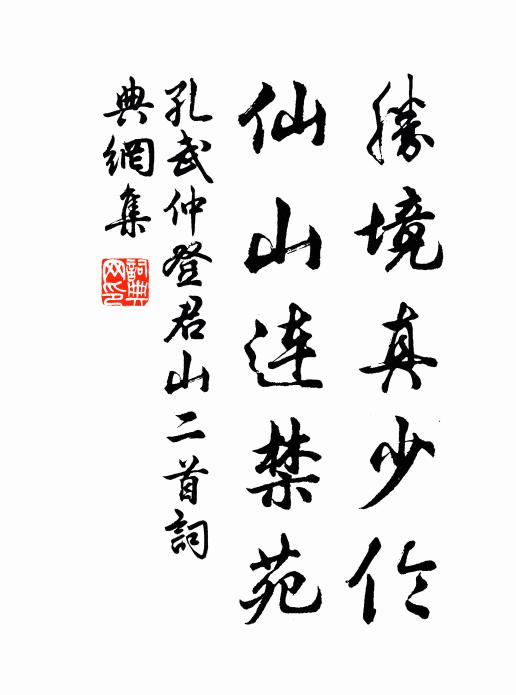 勝境真少伦
仙山連禁苑
孔武仲登君山二首詞
典網集
詞典网印